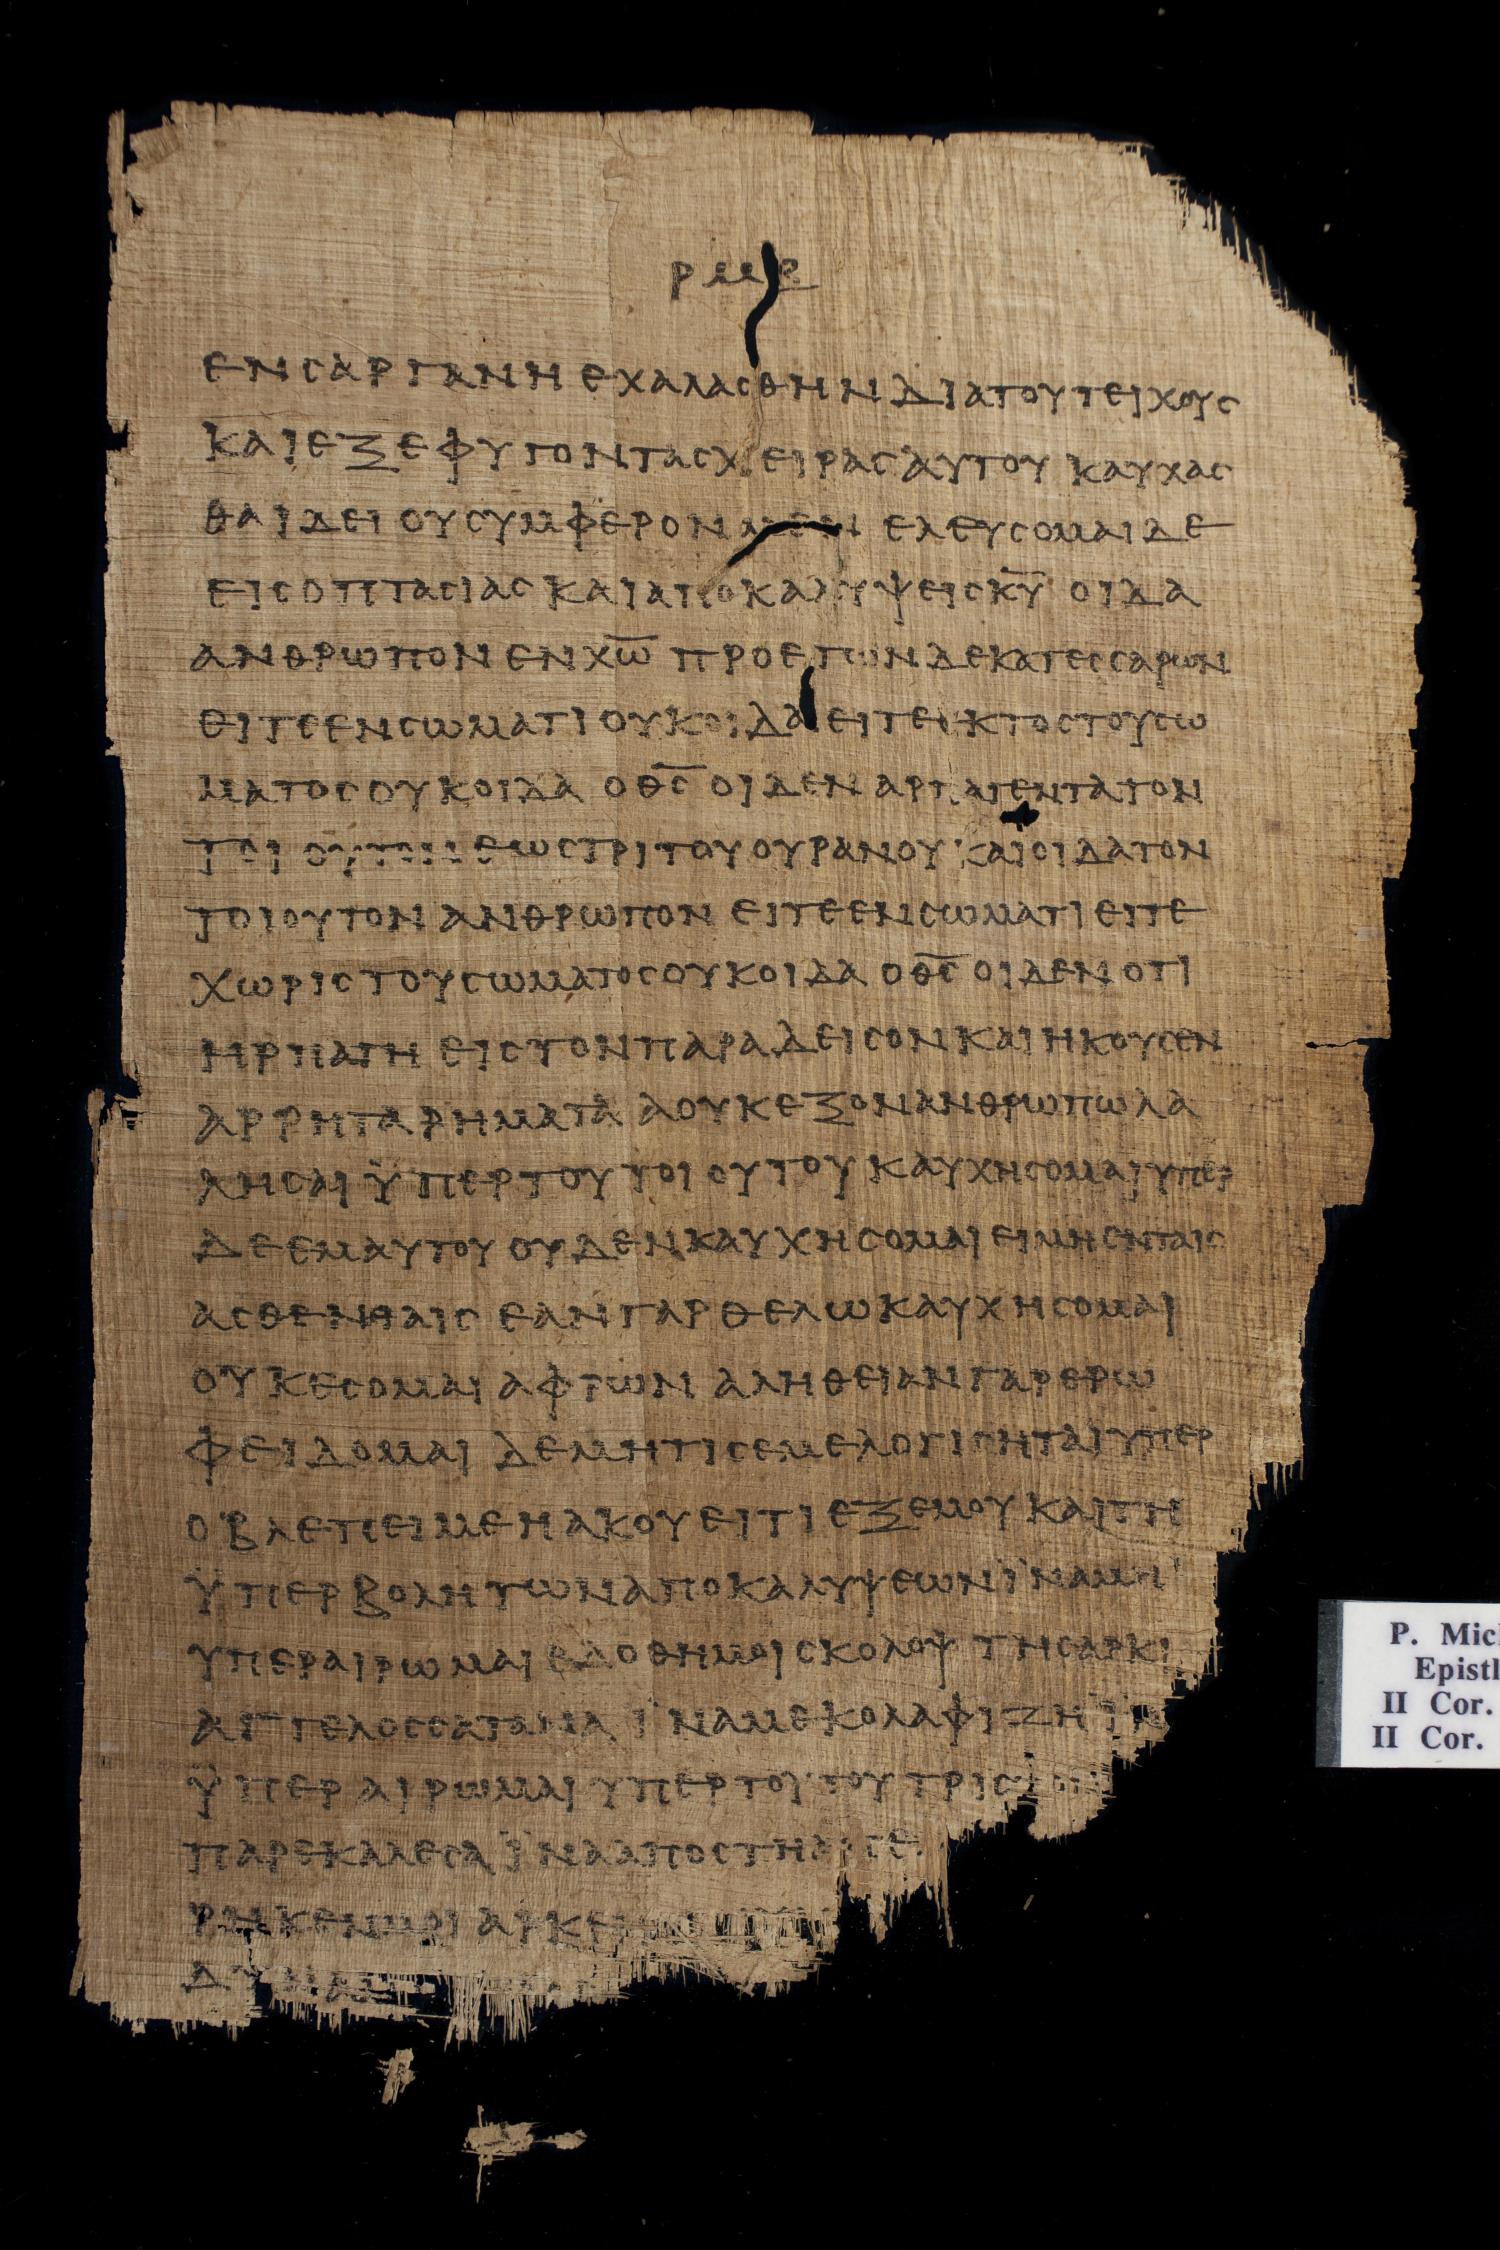 ΡΜΒ
ΕΝ ΣΑΡΓΑΝΗ ΕΧΑΛΑΣΘΗΝ ΔΙΑ ΤΟΥ ΤΕΙΧΟΥΣ
ΚΑΙ ΕΞΕΦΥΓΟΝ ΤΑΣ ΧΕΙΡΑΣ ΑΥΤΟΥ ΚΑΥΧΑΣ
ΘΑΙ ΔΕΙ ΟΥ ΣΥΜΦΕΡΟΝ ΜΕΝ ΕΛΕΥΣΟΜΑΙ ΔΕ
ΕΙΣ ΟΠΤΑΣΙΑΣ ΚΑΙ ΑΠΟΚΑΛΥΨΕΙΣ Κ̅Υ̅ ΟΙΔΑ
ΑΝΘΡΩΠΟΝ ΕΝ Χ̅Ω̅ ΠΡΟ ΕΤΩΝ ΔΕΚΑΤΕΣΣΑΡΩΝ
ΕΙΤΕ ΕΝ ΣΩΜΑΤΙ ΟΥΚ ΟΙΔΑ ΕΙΤΕ ΕΚΤΟΣ ΤΟΥ ΣΩ
ΜΑΤΟΣ ΟΥΚ ΟΙΔΑ Ο Θ̅Σ̅ ΟΙΔΕΝ ΑΡΠΑΓΕΝΤΑ ΤΟΝ
ΤΟΙΟΥΤΟΝ ΕΩΣ ΤΡΙΤΟΥ ΟΥΡΑΝΟΥ ΚΑΙ ΟΙΔΑ ΤΟΝ
ΤΟΙΟΥΤΟΝ ΑΝΘΡΩΠΟΝ ΕΙΤΕ ΕΝ ΣΩΜΑΤΙ ΕΙΤΕ
ΧΩΡΙΣ ΤΟΥ ΣΩΜΑΤΟΣ ΟΥΚ ΟΙΔΑ Ο Θ̅Σ̅ ΟΙΔΕΝ ΟΤΙ
ΗΡΠΑΓΗ ΕΙΣ ΤΟΝ ΠΑΡΑΔΕΙΣΟΝ ΚΑΙ ΗΚΟΥΣΕΝ
ΑΡΡΗΤΑ ΡΗΜΑΤΑ Α ΟΥΚ ΕΞΟΝ ΑΝΘΡΩΠΩ ΛΑ
ΛΗΣΑΙ ΫΠΕΡ ΤΟΥ ΤΟΙΟΥΤΟΥ ΚΑΥΧΗΣΟΜΑΙ ΥΠΕΡ
ΔΕ ΕΜΑΥΤΟΥ ΟΥΔΕΝ ΚΑΥΧΗΣΟΜΑΙ ΕΙ ΜΗ ΕΝ ΤΑΙΣ
ΑΣΘΕΝΕΙΑΙΣ ΕΑΝ ΓΑΡ ΘΕΛΩ ΚΑΥΧΗΣΟΜΑΙ
ΟΥΚ ΕΣΟΜΑΙ ΑΦΡΩΝ ΑΛΗΘΕΙΑΝ ΓΑΡ ΕΡΩ
ΦΕΙΔΟΜΑΙ ΔΕ ΜΗ ΤΙΣ ΕΜΕ ΛΟΓΙΣΗΤΑΙ ΥΠΕΡ
Ο ΒΛΕΠΕΙ ΜΕ Η ΑΚΟΥΕΙ ΤΙ ΕΞ ΕΜΟΥ ΚΑΙ ΤΗ
ΫΠΕΡΒΟΛΗ ΤΩΝ ΑΠΟΚΑΛΥΨΕΩΝ ΪΝΑ ΜΗ
ΥΠΕΡΑΙΡΩΜΑΙ ΕΔΟΘΗ ΜΟΙ ΣΚΟΛΟΨ ΤΗ ΣΑΡΚΙ
ΑΓΓΕΛΟΣ ΣΑΤΑΝΑ ΪΝΑ ΜΕ ΚΟΛΑΦΙΖΗ ΪΝ
ΫΠΕΡΑΙΡΩΜΑΙ ΥΠΕΡ ΤΟΥΤΟΥ ΤΡΙΣ
ΠΑΡΕΚΑΛΕΣΑ ΪΝΑ ΑΠΟΣΤΗ
ΡΗΚΕΝ ΜΟΙ ΑΡΚΕΙ
ΔΥΝΑ
P. Mic
Epistl
II Cor.
II Cor.